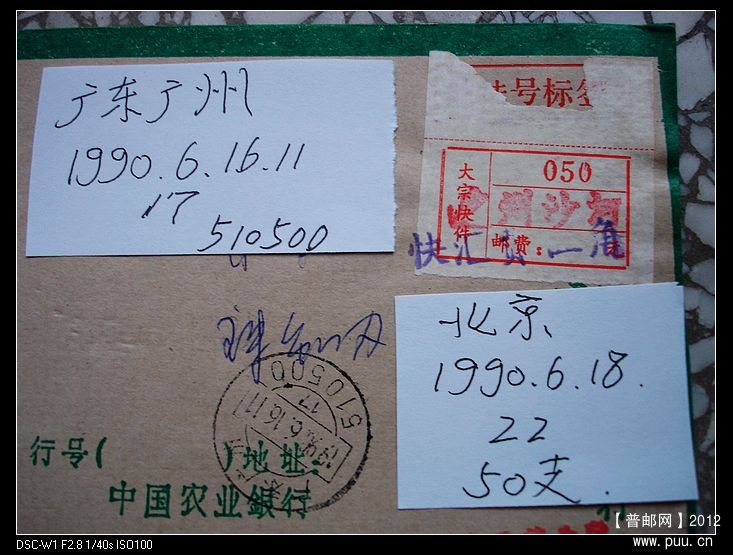 广东广州
1990.6.16.11
17
510500
挂号标签
050
大宗快件
州沙
邮费：
快汇 一角
510500
1990.6.16.11
17
北京
1990.6.18.
22
50支.
行号( )地址:
中国农业銀行
【普邮网】2012
www.puu.cn
DSC-W1 F2.8 1/40s ISO100